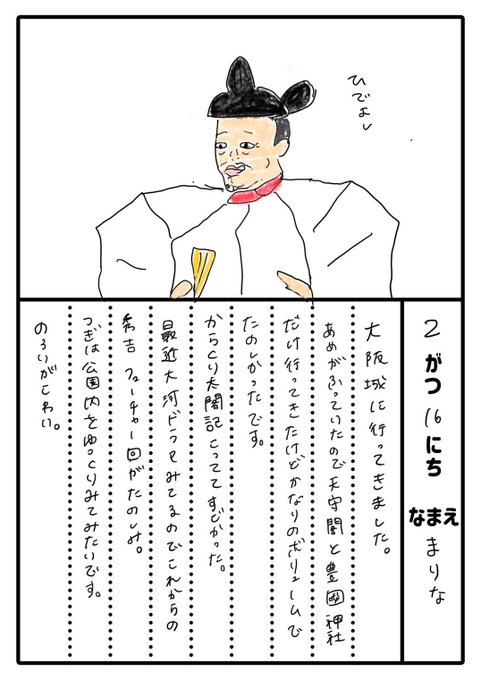 ひでよし
2がつ16にち なまえ まりな
大阪城に行ってきました。
あめがふっていたので天守閣と豊國神社
だけ行ってきたけどかなりのボリュームで
たのしかったです。
からくり太閤記こってて すごかった。
最近大河ドラマをみてるのでこれからの
秀吉 フューチャー回がたのしみ。
つぎは公園内をゆっくりみてみたいです。
のろいがこわい。